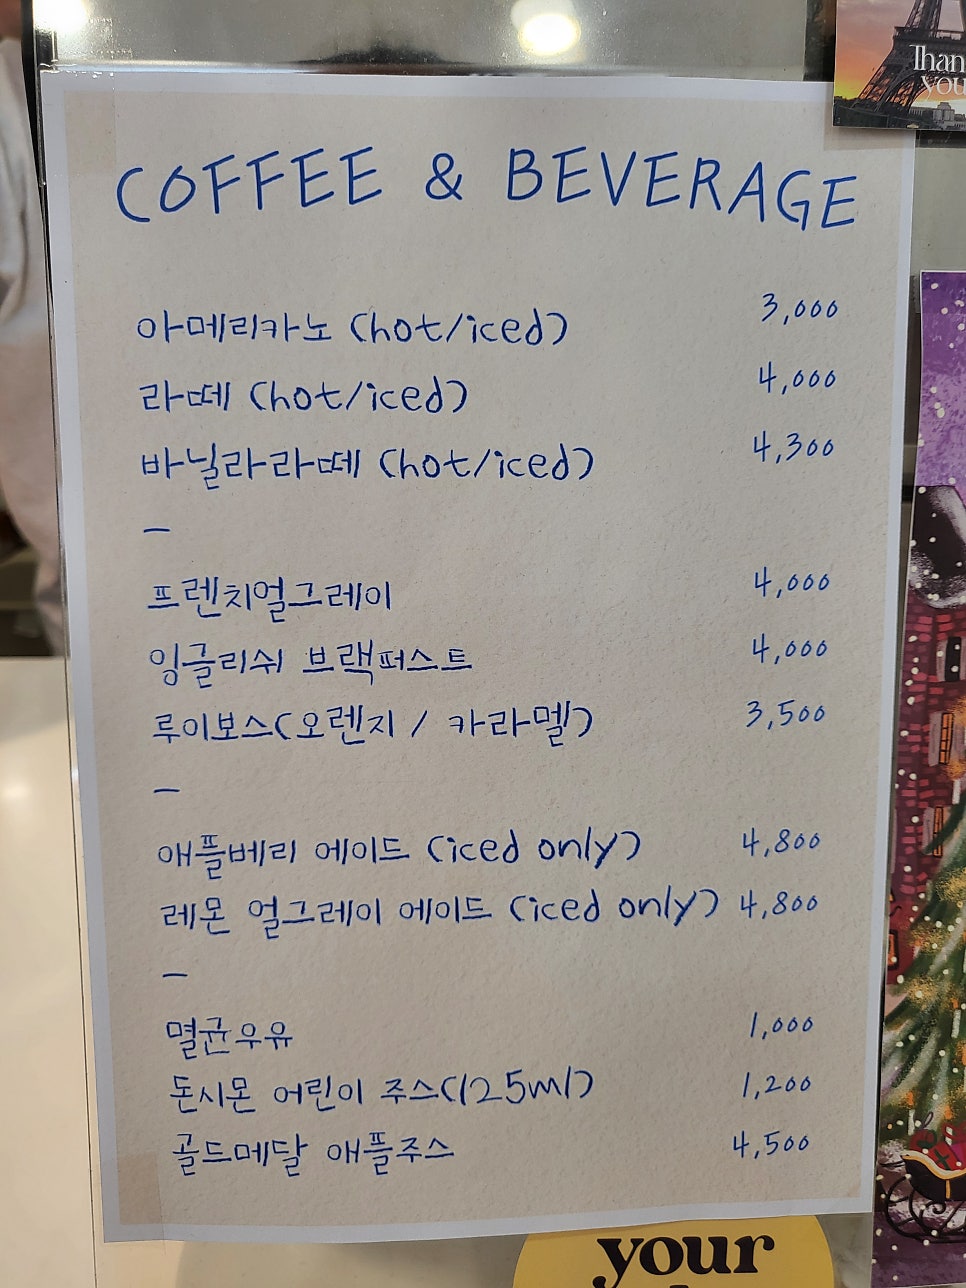 Than
you
COFFEE & BEVERAGE
아메리카노 (hot/iced) 3,000
라떼 (hot/iced) 4,000
바닐라라떼 (hot/iced) 4,300
—
프렌치얼그레이 4,000
잉글리쉬 브랙퍼스트 4,000
루이보스(오렌지 / 카라멜) 3,500
—
애플베리 에이드 (iced only) 4,800
레몬 얼그레이 에이드 (iced only) 4,800
—
멸균우유 1,000
돈시몬 어린이 주스(125ml) 1,200
골드메달 애플주스 4,500
your